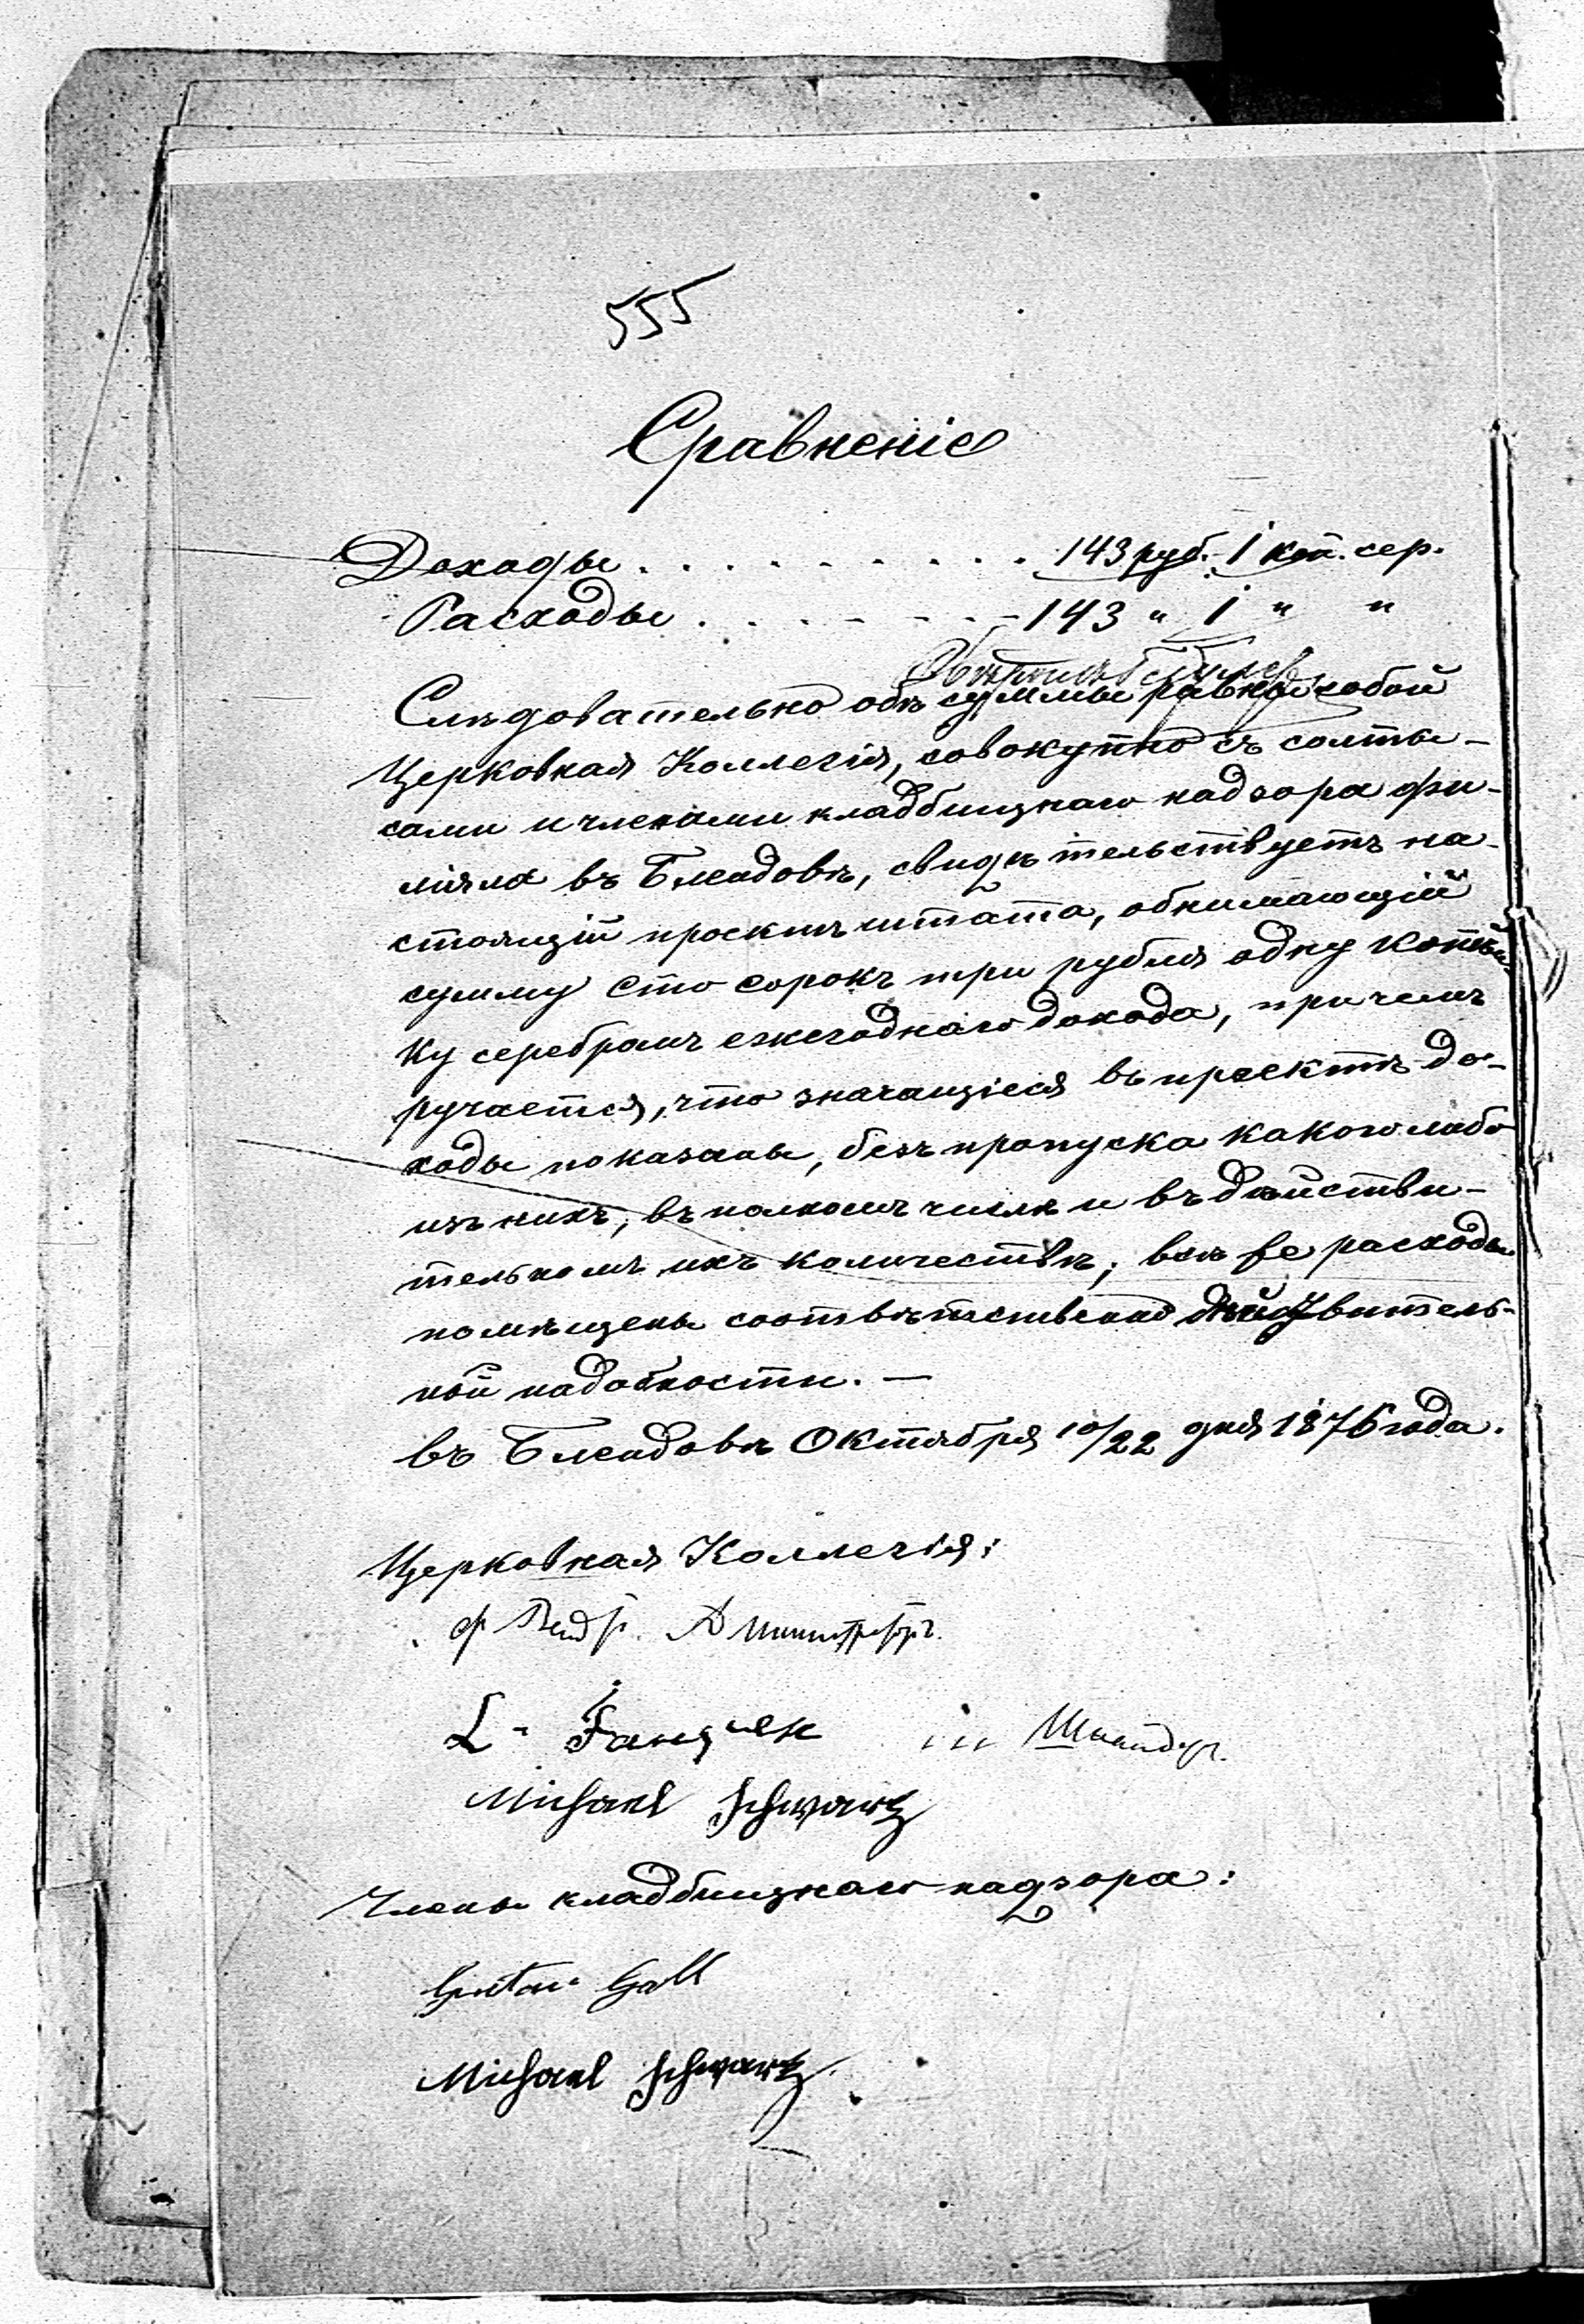 555
Сравненіе
Доходы . . . . . . . . . . 143 руб. 1 коп. сер.
Расходы . . . . - - . - 143 " 1 " "
Слѣдовательно обѣ суммы равны собой
Церковная Коллегія, совокупно съ солты-
сами и членами кладбищнаго надзора фи-
ліяла въ Блендовѣ, свидѣтельствуетъ на-
стоящій проектъ штата, обнимающій
сумму сто сорокъ три рубля одну копѣй-
ку серебромъ ежегоднаго дохода, при чемъ
ручается, что значащіеся въ проектѣ до-
ходы показаны, безъ пропуска какого либо
изъ нихъ, въ полномъ числѣ и въ дѣйстви-
тельномъ ихъ количествѣ; всѣ же расходы
помѣщены соотвѣтственно дѣйствитель-
ной надобности. —
въ Блендовѣ Октября 10/22 дня 1876 года.
Церковная Коллегія:
L.
Michael Schwartz
Члены кладбищнаго надзора:
Gall
Michael Schwartz